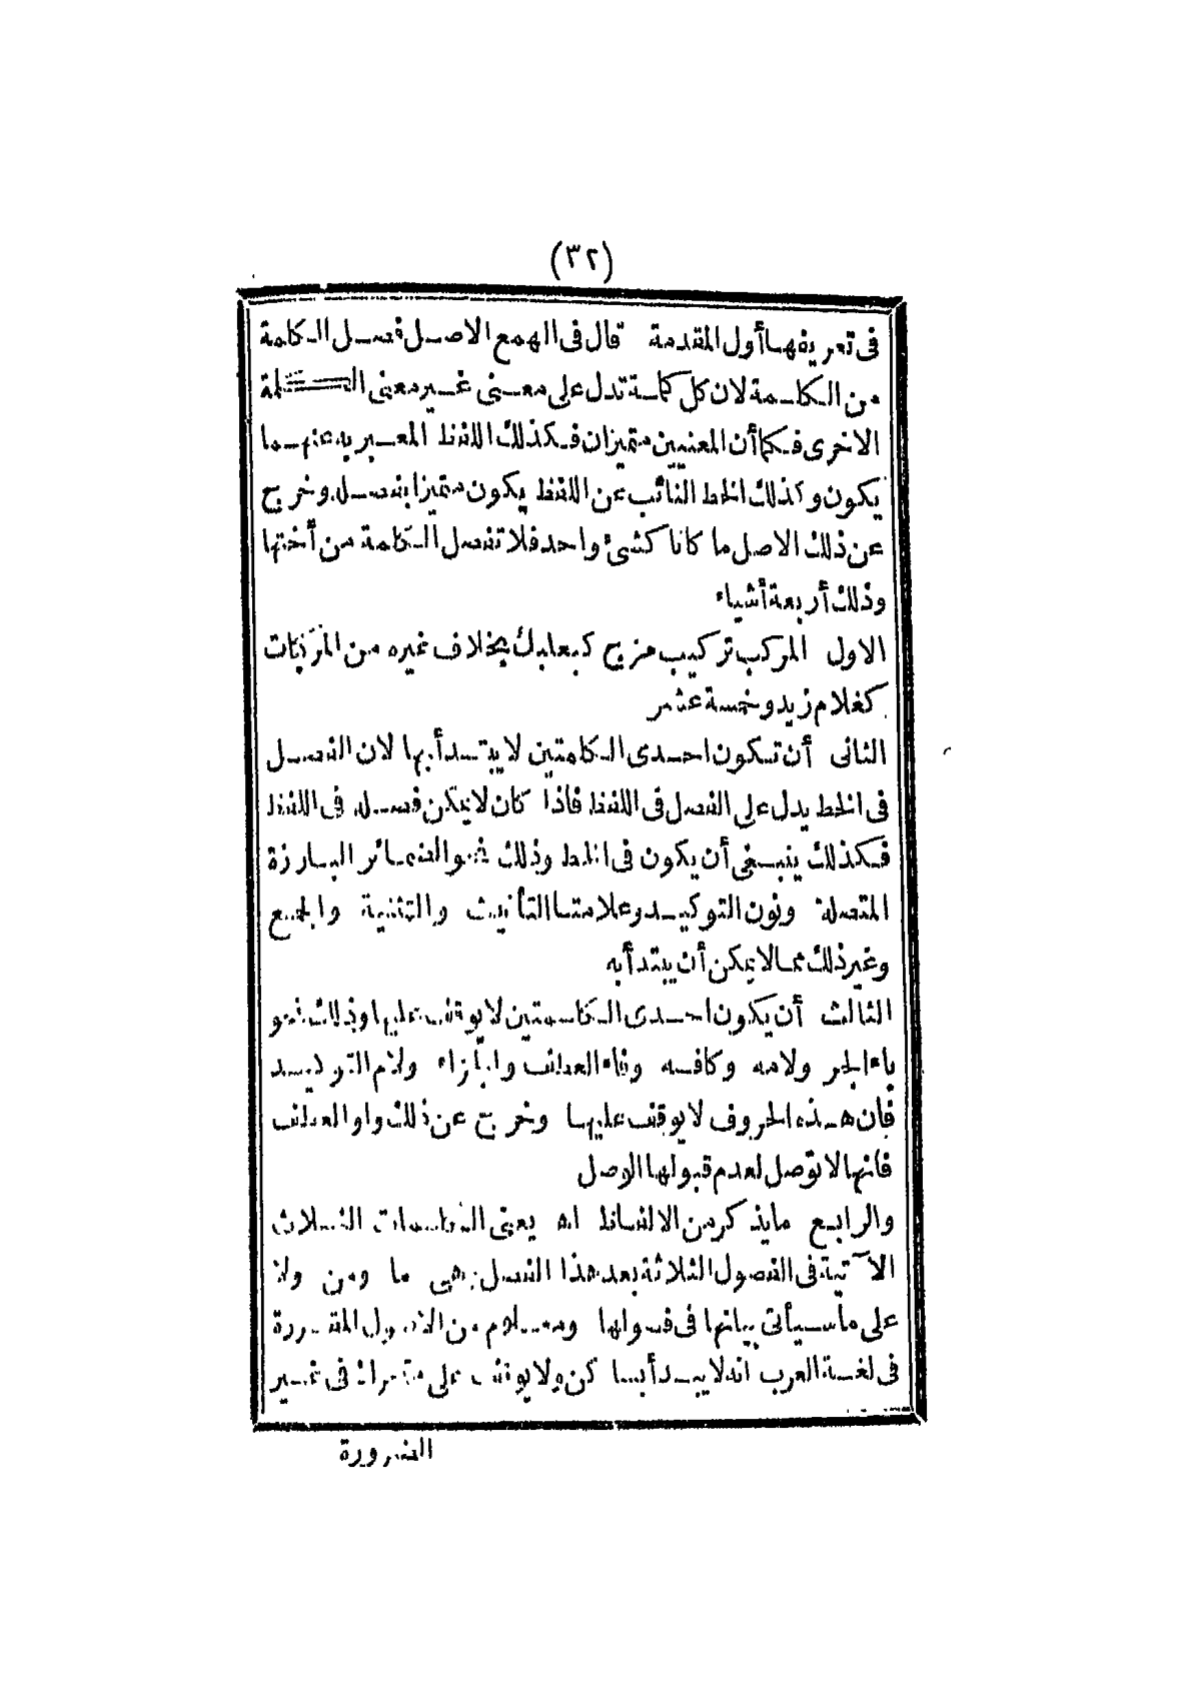 (٣٢)
فى تعريفها أول المقدمة قال فى الهمع الاصل فصل الكلمة
من الكلمة لان كل كلمة تدل على معنى غير معنى الكلمة
الاخرى فكما أن المعنيين متميزان فكذلك اللفظ المعبر به عنهما
يكون وكذلك الخط النائب عن اللفظ يكون متميزا بفصله وخرج
عن ذلك الاصل ما كانا كشئ واحد فلا تفصل الكلمة من أختها
وذلك أربعة أشياء
الاول المركب تركيب مزج كبعلبك بخلاف غيره من المركبات
كغلام زيد وخمسة عشر
الثانى أن تكون احدى الكلمتين لا يبتدأ بها لان الفصل
فى الخط يدل على الفصل فى اللفظ فاذا كان لا يمكن فصله فى اللفظ
فكذلك ينبغى أن يكون فى الخط وذلك نحو الضمائر البارزة
المتصلة ونون التوكيد وعلامتا التأنيث والتثنية والجمع
وغير ذلك مما لا يمكن أن يبتدأ به
الثالث أن يكون احدى الكلمتين لا يوقف عليها وذلك نحو
باء الجر ولامه وكافه وفاء العطف والجزاء ولام التوكيد
فان هذه الحروف لا يوقف عليها وخرج عن ذلك واو العطف
فانها لا توصل لعدم قبولها الوصل
والرابع ما يذكر من الالفاظ اه يعنى الكلمات الثلاث
الآتية فى الفصول الثلاثة بعد هذا الفصل وهى ما ومن ولا
على ما سيأتى بيانها فى فصولها ومعلوم من الاصول المقررة
فى لغة العرب انه لا يبدأ بساكن ولا يوقف على متحرك فى غير
الضرورة